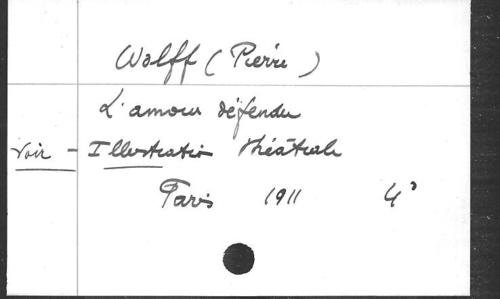 Wolff (Pierre)
L'amour défendu
Voir - Illustration théâtrale
Paris 1911 4°